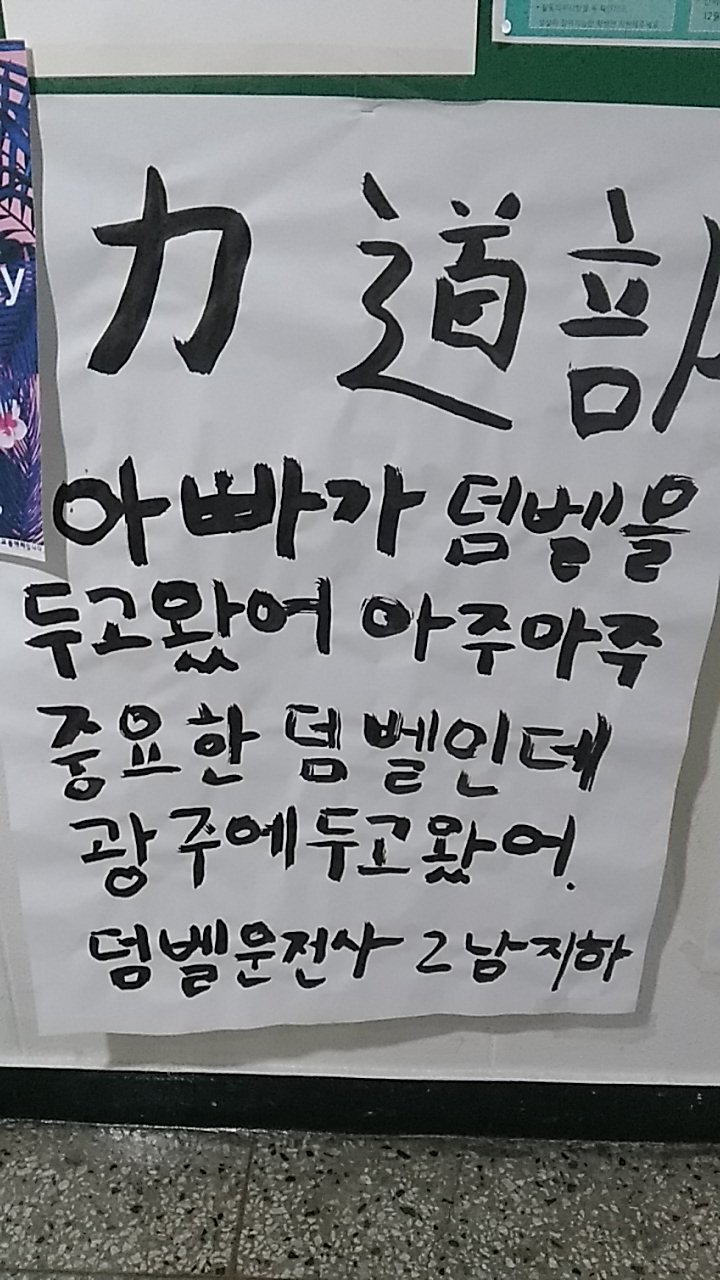 力 道 部
아빠가 덤벨을
두고왔어 아주아주
중요한 덤벨인데
광주에두고왔어.
덤벨운전사 그남지하
y
12월